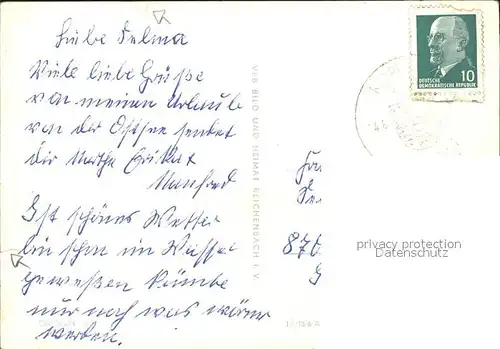 Liebe Selma
Viele liebe Grüße
von meinem Urlaub
von der Ostsee sendet
dir Martha Erika
Manfred
Ist schönes Wetter
bin schon im Wasser
geweßen könnte
nur noch was wärmer
werden.
VEB BILD UND HEIMAT REICHENBACH I. V.
DEUTSCHE
DEMOKRATISCHE REPUBLIK
10
870
privacy protection
Datenschutz